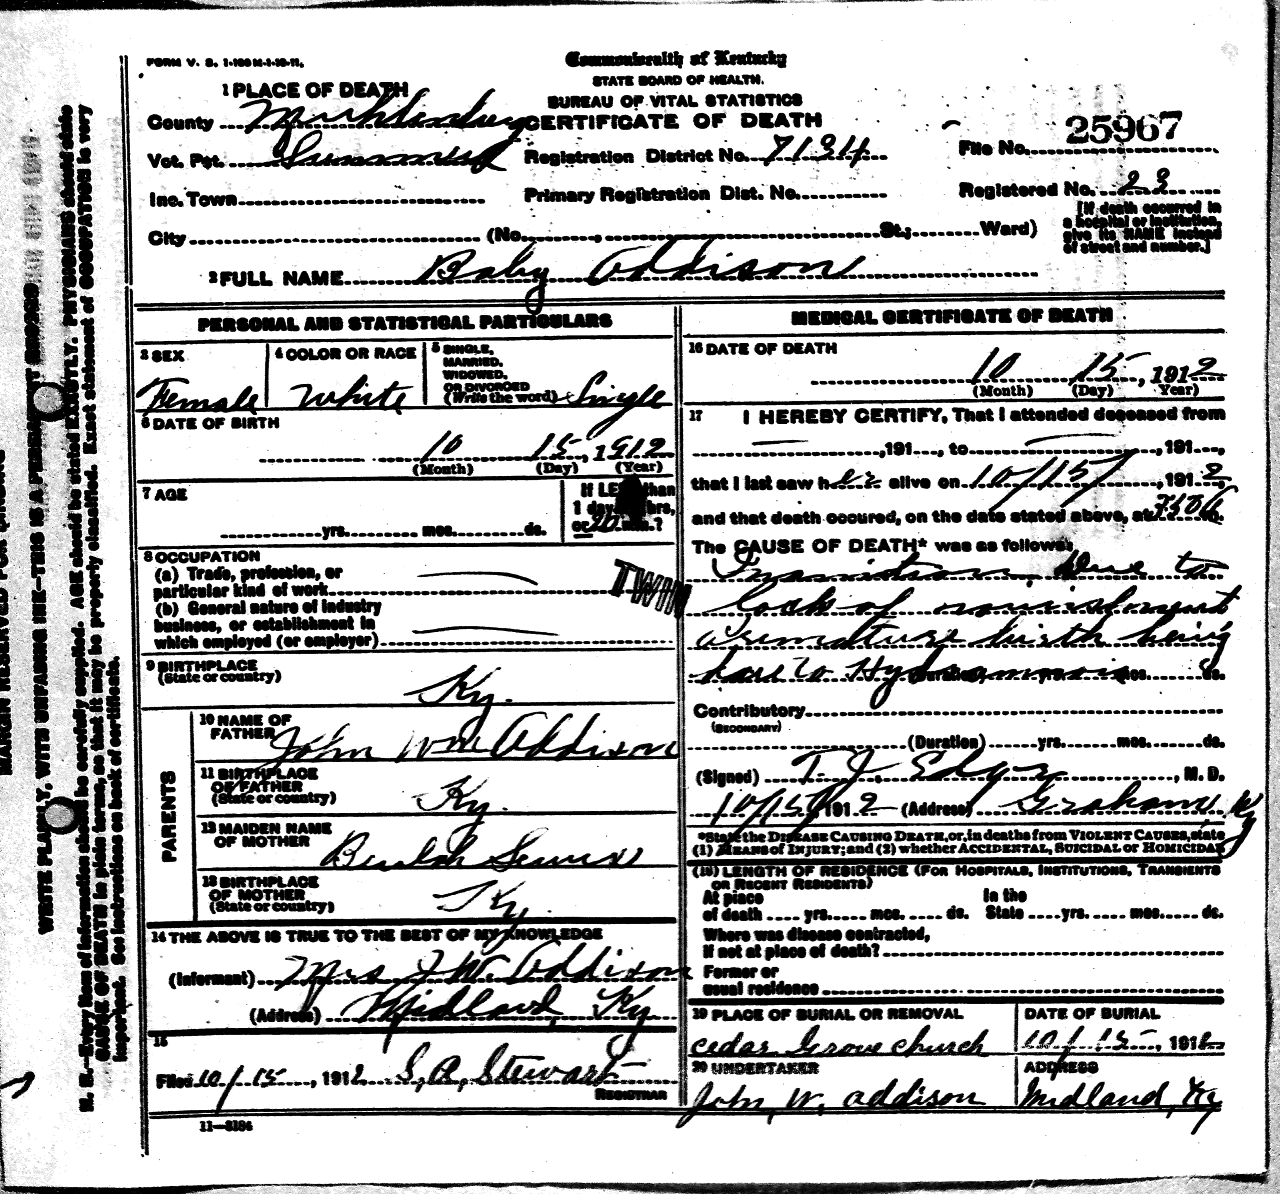 FORM V. S. 1-100 M-1-10-11.
Commonwealth of Kentucky
STATE BOARD OF HEALTH.
BUREAU OF VITAL STATISTICS
CERTIFICATE OF DEATH
1 PLACE OF DEATH
County Muhlenburg
Vot. Pct.
Registration District No. 7134
File No. 25967
Inc. Town
Primary Registration Dist. No.
Registered No. 23
City (No. , St.; Ward)
[If death occurred in a hospital or institution, give its NAME instead of street and number.]
2 FULL NAME Baby Addison
PERSONAL AND STATISTICAL PARTICULARS
3 SEX
Female
4 COLOR OR RACE
White
5 SINGLE, MARRIED, WIDOWED, OR DIVORCED (Write the word) Single
6 DATE OF BIRTH
10 15, 1912
(Month) (Day) (Year)
7 AGE
yrs. mos. ds.
If LESS than
1 day hrs,
or 20 min.?
8 OCCUPATION
(a) Trade, profession, or
particular kind of work
(b) General nature of industry
business, or establishment in
which employed (or employer)
TWIN
9 BIRTHPLACE
(State or country)
Ky.
PARENTS
10 NAME OF FATHER
John Wm Addison
11 BIRTHPLACE OF FATHER
(State or country)
Ky.
12 MAIDEN NAME OF MOTHER
Beulah
13 BIRTHPLACE OF MOTHER
(State or country)
Ky.
14 THE ABOVE IS TRUE TO THE BEST OF MY KNOWLEDGE
(Informant) Mrs J W. Addison
(Address) Midland, Ky
15
Filed 10/15, 1912 S. A. Stewart
REGISTRAR
11—3184
MEDICAL CERTIFICATE OF DEATH
16 DATE OF DEATH
10 15, 1912
(Month) (Day) (Year)
17 I HEREBY CERTIFY, That I attended deceased from
, 191 , to , 191 ,
that I last saw her alive on 10/15, 1912,
and that death occured, on the date stated above, at m.
The CAUSE OF DEATH* was as follows:
Inanition, Due to
lack of nourishment
Premature birth being
due to Hydramnois
(Duration) yrs. mos. ds.
Contributory
(SECONDARY)
(Duration) yrs. mos. ds.
(Signed) T. J. , M. D.
10/15, 1912 (Address) Graham, Ky
*State the DISEASE CAUSING DEATH, or, in deaths from VIOLENT CAUSES, state
(1) MEANS OF INJURY; and (2) whether ACCIDENTAL, SUICIDAL or HOMICIDAL
(18) LENGTH OF RESIDENCE (FOR HOSPITALS, INSTITUTIONS, TRANSIENTS
OR RECENT RESIDENTS)
At place In the
of death yrs. mos. ds. State yrs. mos. ds.
Where was disease contracted,
if not at place of death?
Former or
usual residence
19 PLACE OF BURIAL OR REMOVAL
cedar Grove church
DATE OF BURIAL
10/15, 1912
20 UNDERTAKER
John, W, addison
ADDRESS
Midland, Ky
MARGIN RESERVED FOR BINDING
WRITE PLAINLY, WITH UNFADING INK—THIS IS A PERMANENT RECORD
N. B.—Every item of information should be carefully supplied. AGE should be stated EXACTLY. PHYSICIANS should state
CAUSE OF DEATH in plain terms, so that it may be properly classified. Exact statement of OCCUPATION is very
important. See instructions on back of certificate.